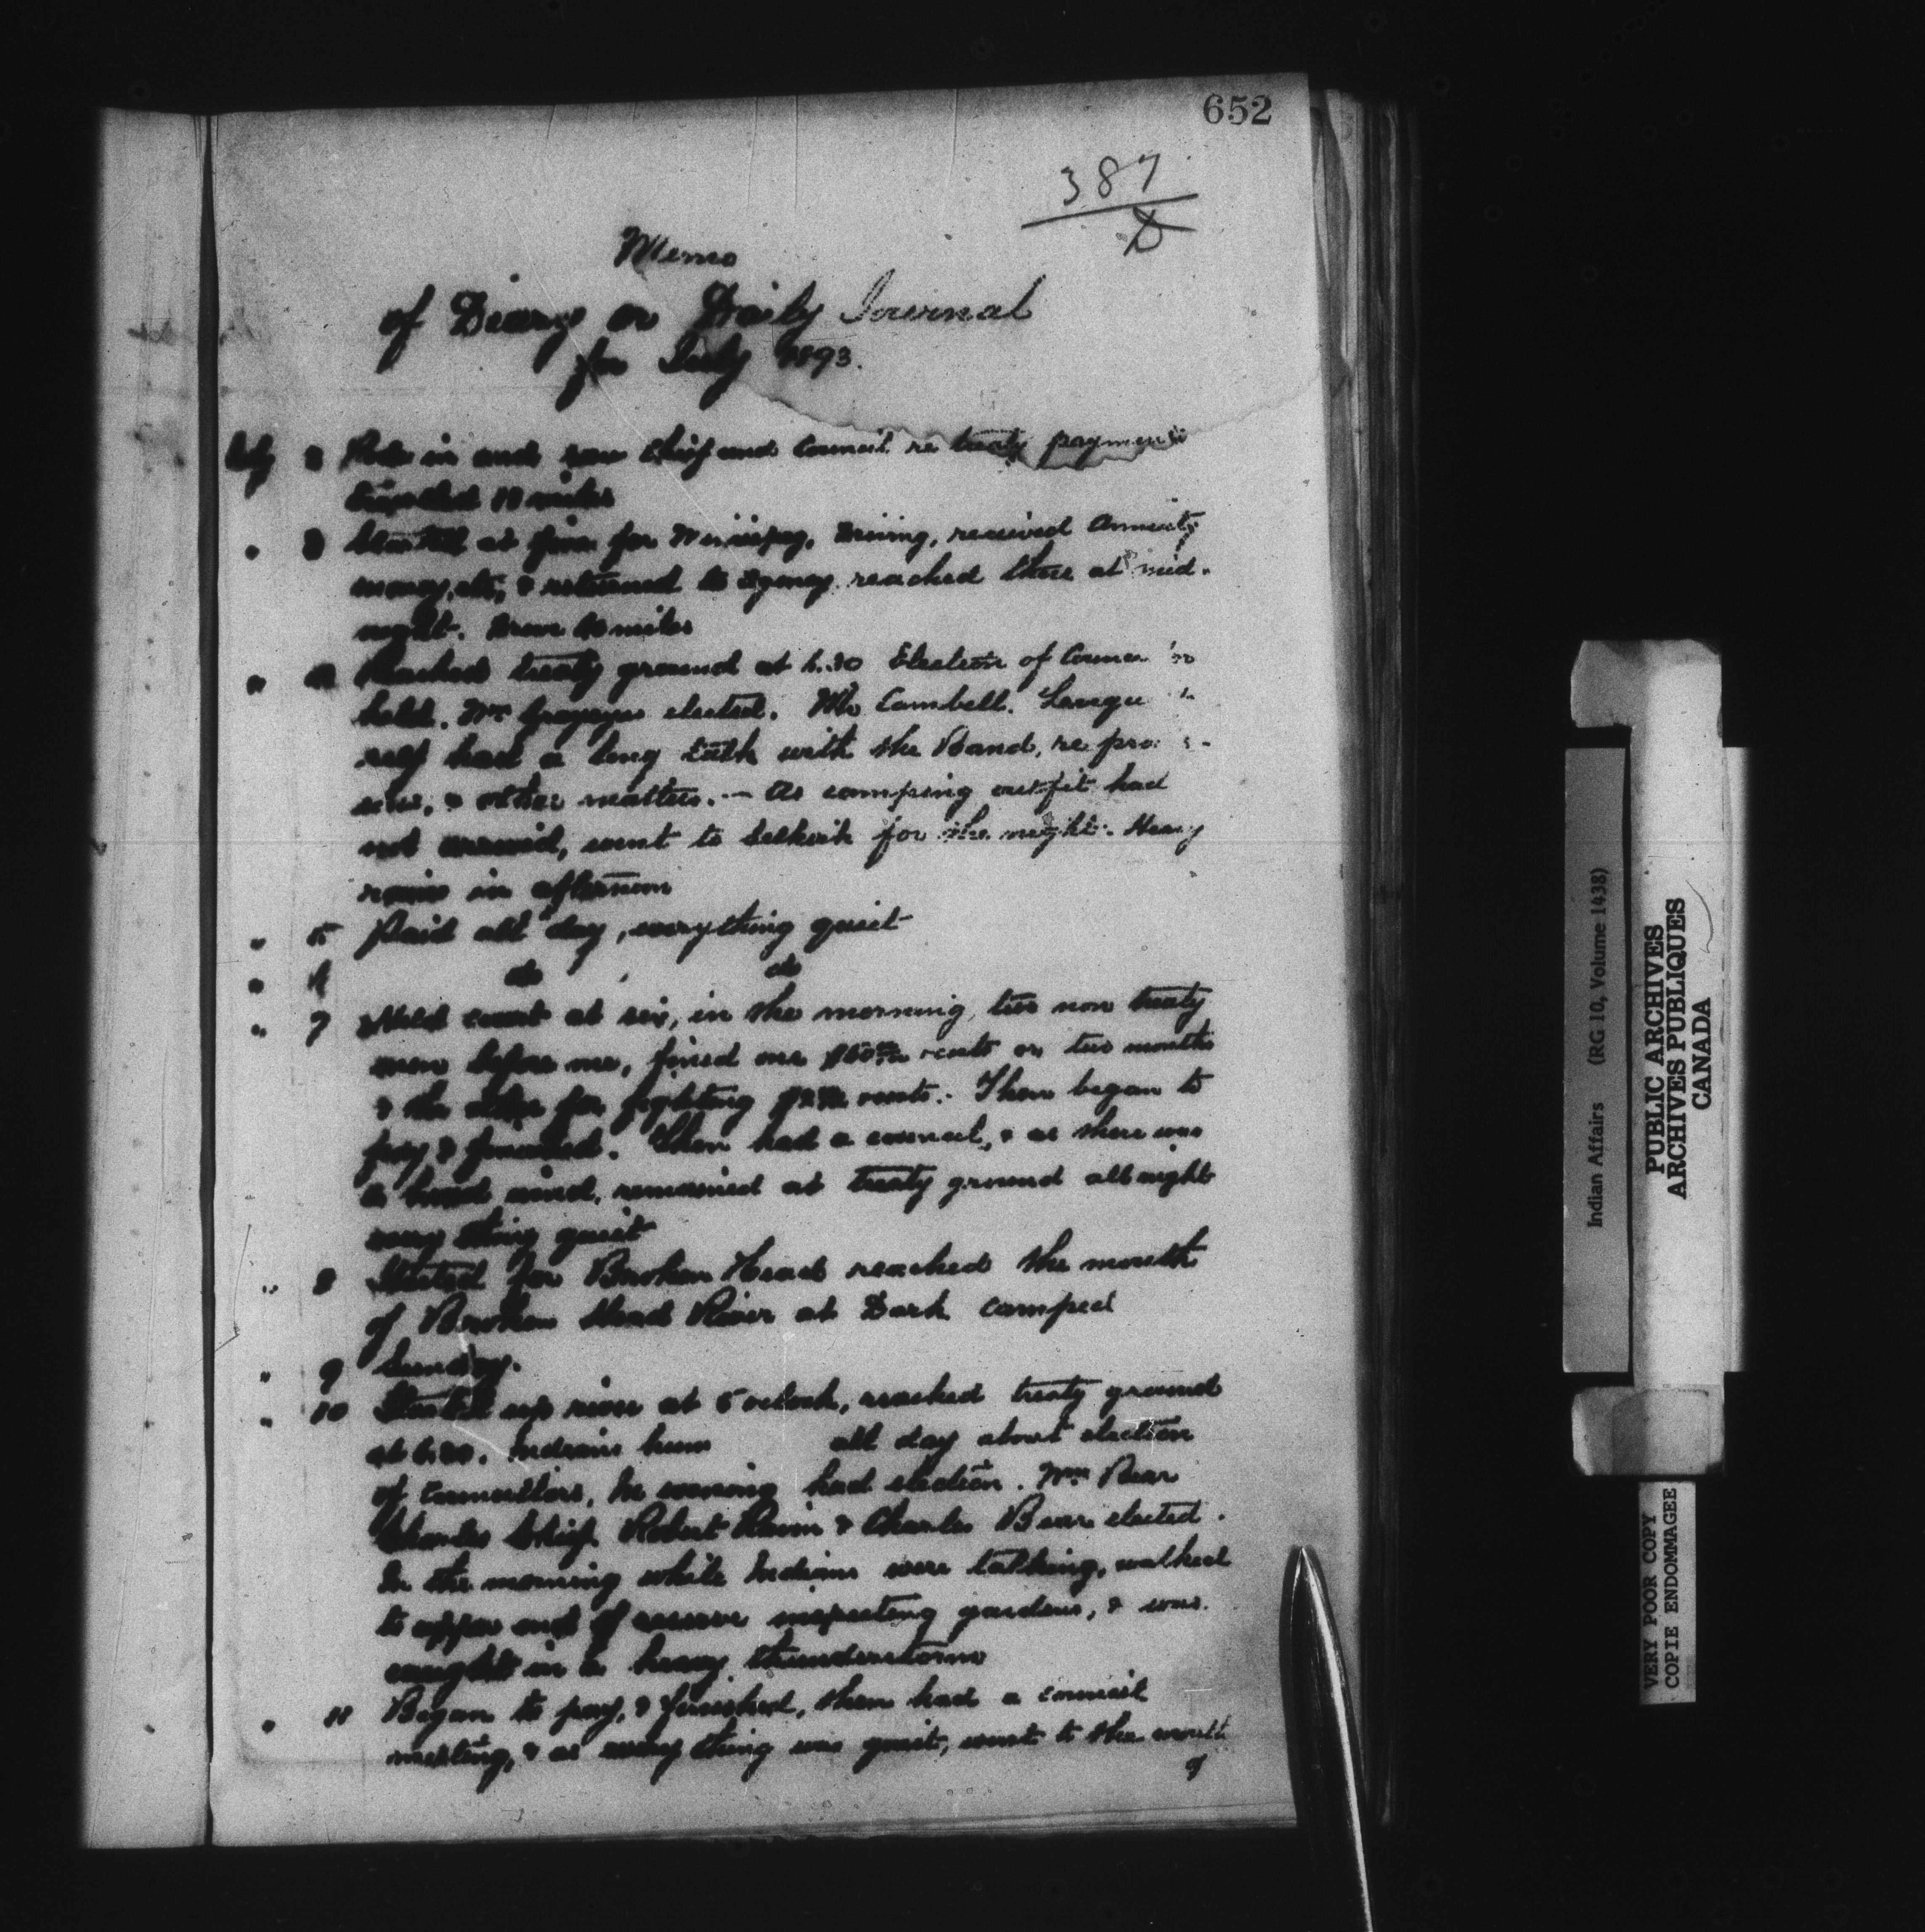 652
387
D
Memo
of Diary or Daily Journal
for July 1893.
July Rode in and saw Chief and Council re treaty payments
Travelled miles
" 3 Started at five for Winnipeg, received Annuity
money, etc, & returned to Agency reached there at mid-
night. Drove miles
" Reached treaty ground at 6.30 Election of
held. Wm elected. Mr Cambell.
self had a long talk with the Band, re
& other matters. — As camping outfit had
not arrived, went to Selkirk for the night. Heavy
rains in afternoon
" 5 Paid all day, everything quiet
" 6 do do
" 7 Held court at six, in the morning, two non treaty
men before me, fined one & costs or two months
& the other for fighting & costs. Then began to
pay & finished. Then had a council, & as there was
a head wind, remained at treaty ground all night
every thing quiet
" 8 Started for Broken Head reached the mouth
of Broken Head River at Dark camped
" 9 Sunday.
" 10 Started up river at 5 oclock, reached treaty ground
at Indians all day about election
of Councillors, In evening had election. Wm Bear
Charles Chief Robert & Charles Bear elected.
In the morning while Indians were talking, walked
to upper end of reserve inspecting gardens, & was
caught in a heavy thunderstorm
" 11 Began to pay, & finished, then had a council
meeting, & as every thing was quiet, went to the mouth
of
Indian Affairs (RG 10, Volume 1438)
PUBLIC ARCHIVES
ARCHIVES PUBLIQUES
CANADA
VERY POOR COPY
COPIE ENDOMMAGEE